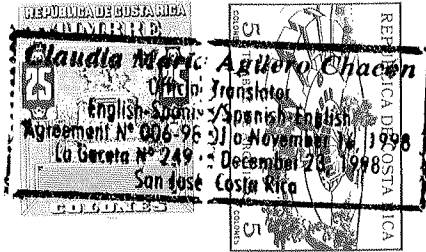 REPUBLICA DE COSTA RICA
TIMBRE
25 25
COLONES
REPUBLICA DE COSTA RICA
5
COLONES
5
COLONES
Claudia María Agüero Chacón
Official Translator
English-Spanish/Spanish-English
Agreement Nº 006-96 November 1998
La Gaceta Nº 249 December 23, 1998
San José Costa Rica